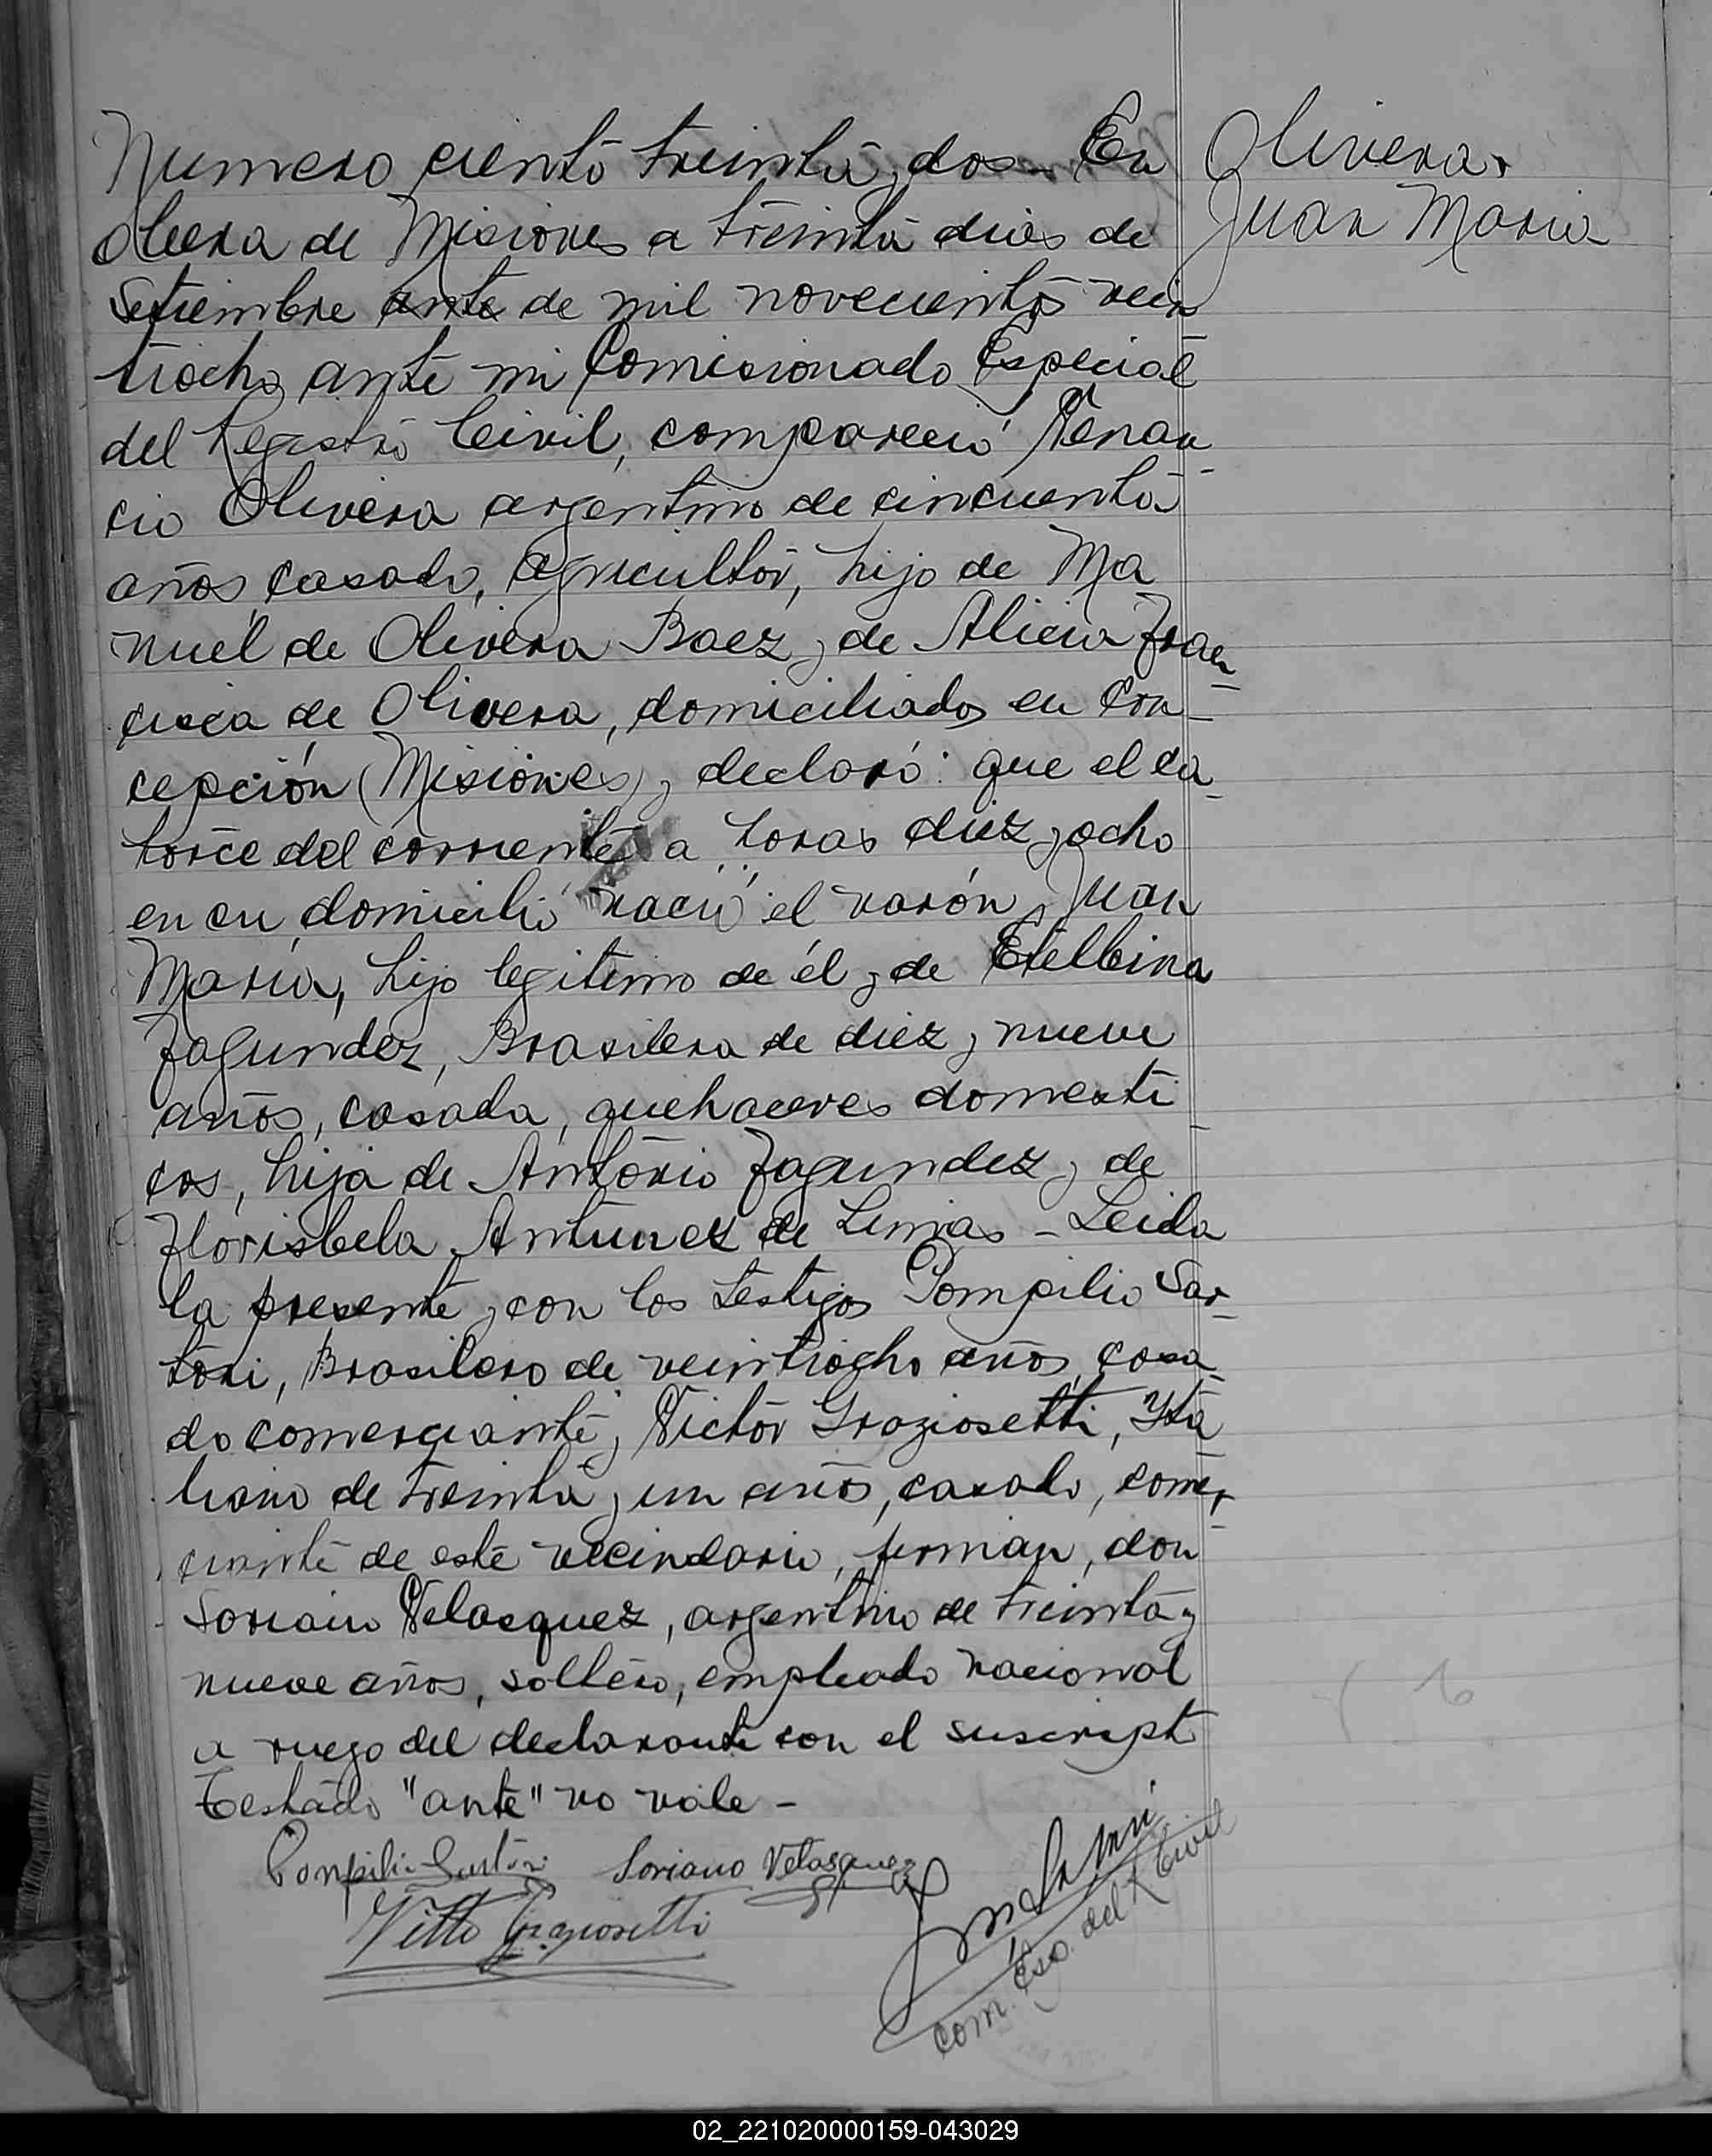 Numero ciento treinta y dos - En
Obera de Misiones a treinta dias de
Setiembre ante de mil novecientos vein
tiocho ante mi Comisionado Especial
del Registro Civil, compareció Venan
cio Olivera argentino de cincuenta
años casado, agricultor, hijo de Ma
nuel de Olivera Baez y de Alicia Fran
cisca de Olivera, domiciliados en Con-
cepción (Misiones) y declaró: que el ca
torce del corriente a horas diez y ocho
en su domicilio nació el varón Juan
Maria, hijo legitimo de él y de Etelbina
Fagundez, Brasilera de diez y nueve
años, casada, quehaceres domesti
cos, hija de Antonio Fagundez y de
Florisbela Antunez de Limas - Leida
la presente y con los testigos Pompilio Sar-
tori, Brasilero de veintiocho años, casa
do comerciante y Victor Graziosetti, Yta
liano de treinta y un años, casado, comer
ciante de este vecindario, firman, don
Soriano Velasquez, argentino de treinta y
nueve años, soltero, empleado nacional
a ruego del declarante con el suscripto
Testado "ante" no vale -
Pompilio Sartori Soriano Velasquez
Vitto Graziosetti
Com. Esp. del R Civil
Olivera
Juan Maria
02_221020000159-043029